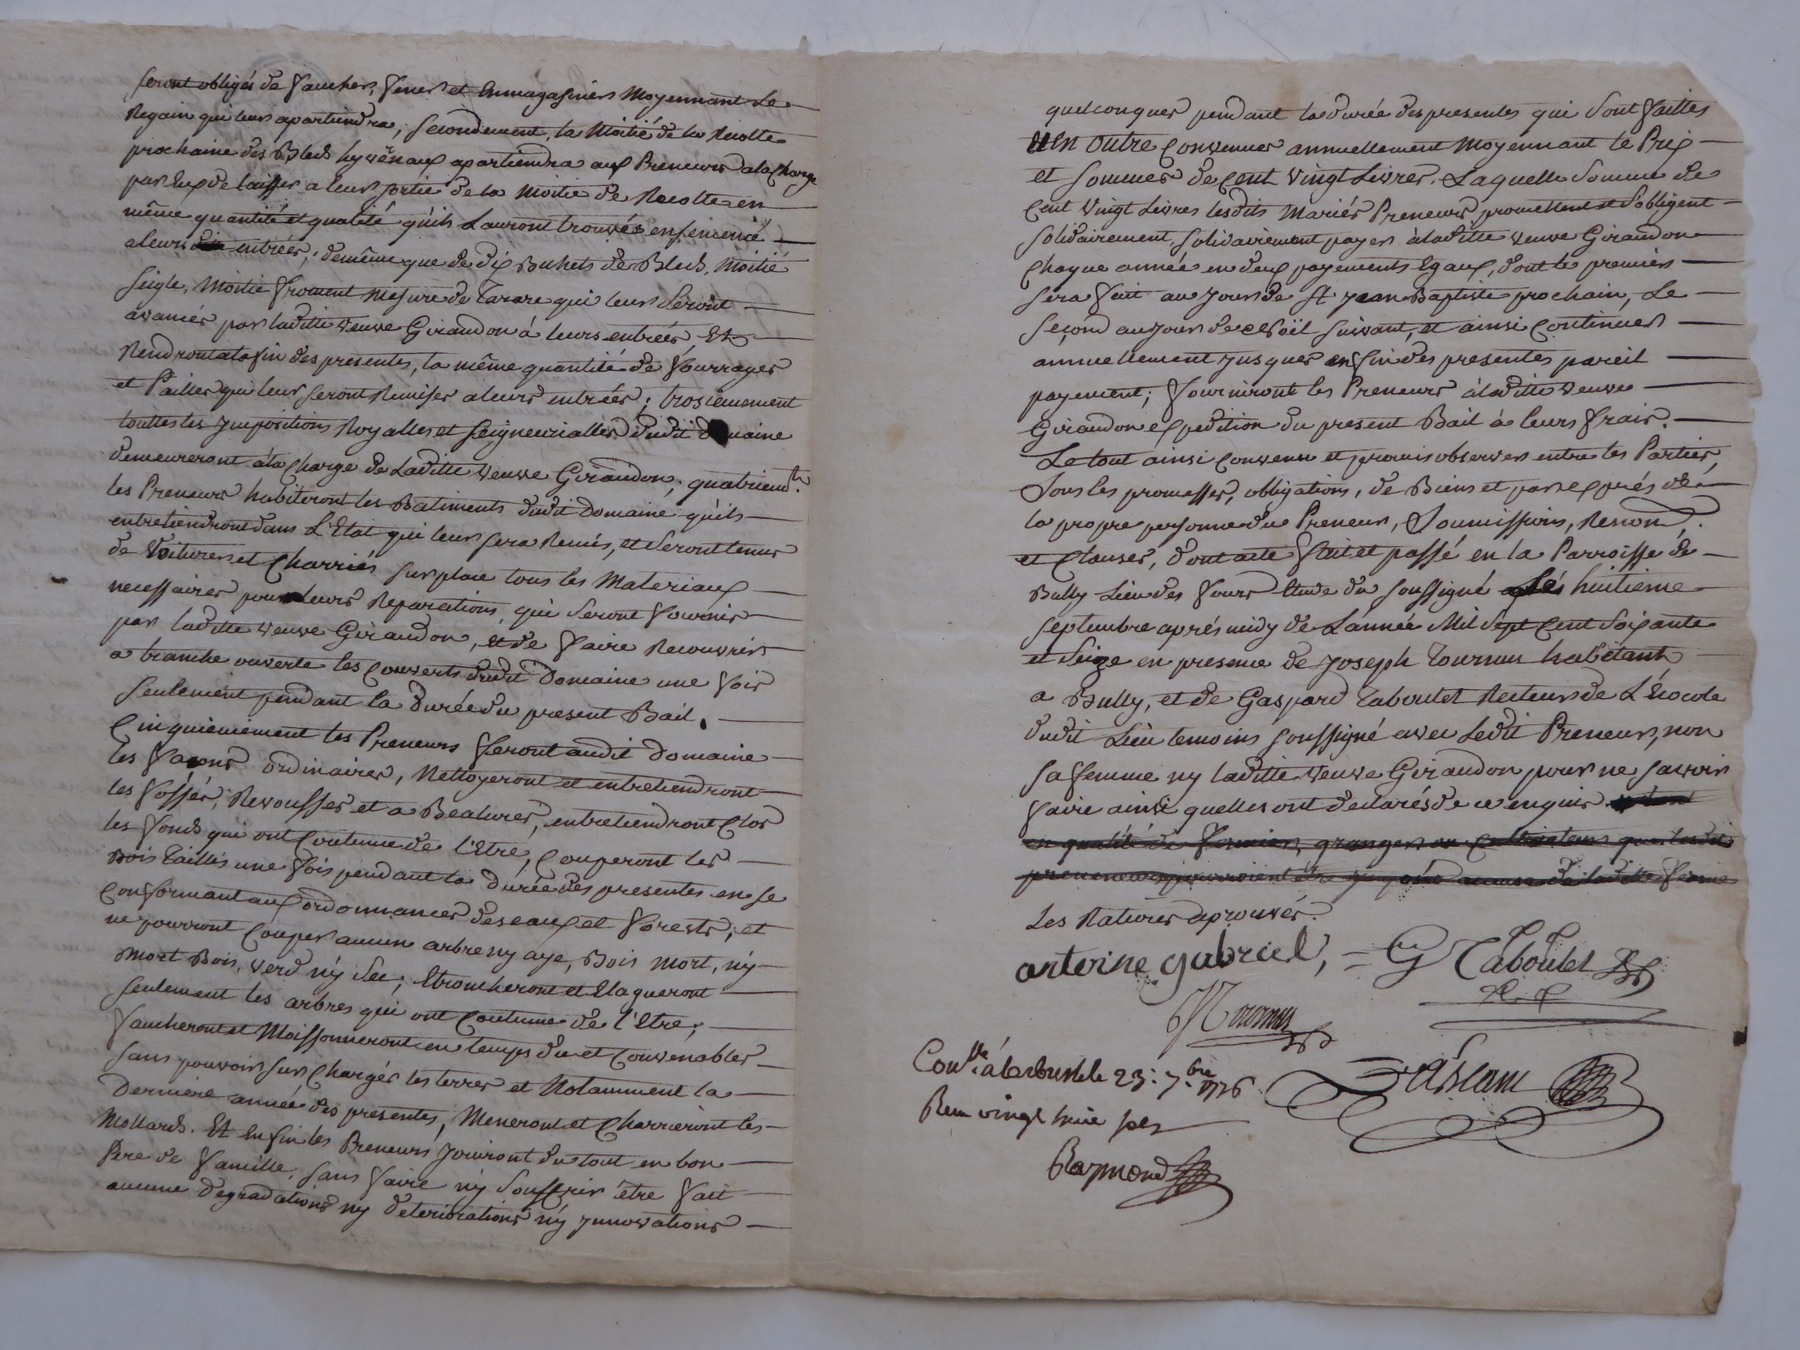 seront obligés de faucher, fener et Enmagasiner Moyennant Le
Regain qui leur apartiendra; secondement, la Moitié de la Recolte
prochaine des Bleds hyvernaux apartiendra aux Preneurs ala Charge
par Eux de laisser a leur sortie de la Moitié de Recolte en
même quantité et qualité qu'ils Lauront trouvés ensemencé
a leurs entrées; demême que de dix Bichets de Bled, Moitié
seigle, Moitié froment mesure de Tarare qui leur seront
avancés par laditte veuve Giraudon à leurs entrées Et
Rendront ala fin des presentes, la même quantité de fourrages
et Pailles qui leur seront Remises a leurs entrées; trosiemement
touttes les Impositions Royalles et seigneurialles dudit domaine
demeureront àla Charge de Laditte veuve Giraudon; quatriemt.
les Preneurs habiteront les Batiments dudit Domaine qu'ils
entretiendront dans L'Etat qui leur sera Remis, et seront tenus
de Voiturer et Charriés sur place tous les Materiaux
necessaires pour leurs Reparations, qui seront fournis
par laditte veuve Giraudon, et de faire Recouvrir
a tranche ouverte les Couverts dudit Domaine une fois
seulement pendant la durée du present Bail.
Cinquiemement les Preneurs feront audit Domaine
les façons ordinaires, Nettoyeront et entretiendront
les fossés, Revousses et a Bealures, entretiendront Clos
les fonds qui ont Coutume de l'Etre, Couperont les
Bois Taillis une fois pendant la durée des presentes en se
Conformant aux ordonnances des eaux et forests; et
ne pourront Couper aucun arbre ny aye, Bois mort, n'y
Mort Bois, verd n'y sec; Etroncheront et Elagueront
seulement les arbres qui ont Coutume de l'Etre;
faucheront et Moissonneront en temps du et Convenables
sans pouvoir sur Chargés les terres et Notamment la
Derniere année des presentes, Meneront et Charrieront les
Mottards. Et Enfin les Preneurs Jouiront du tout en bon
Pere de famille, sans faire n'y souffrir être fait
aucune degradations ny deteriorations n'y Innovations
quelconques pendant la durée des presentes qui sont faittes
En Outre Convenues annuellement Moyennant le Prix
et sommes de Cent Vingt Livres. Laquelle somme de
Cent Vingt Livres lesdits Mariés Preneurs promettent et s'obligent
solidairement, solidairement payer àladitte veuve Giraudon
Chaque année en deux payements Egaux, dont le premier
sera fait au Jour de St Jean Baptiste prochain, Le
second au Jour de Noël suivant, et ainsi Continuer
annuellement Jusques en fin des presentes pareil
payement; fourniront les Preneurs àladitte veuve
Giraudon expedition du present Bail à leurs frais.
Le tout ainsi Convenu et promis observer entre les Parties,
sous les promesses, obligations, de Biens et par exprés de
la propre personne du Preneur, soumissions, Renon.
et Clauses, dont acte fait et passé en la Parroisse de
Bully Lieu des fours Etude du soussigné Les huitieme
septembre aprés midy de L'année Mil sept Cent soixante
et seize en presence de Joseph Tournus habitant
a Bully, et de Gaspard Taboulet Recteur de L'Ecocole
dudit Lieu temoins soussigné avec Ledit Preneur, non
sa femme ny laditte veuve Giraudon pour ne savoir
faire ainsi quelles ont declarés de ce enquis
en qualité de fermier, granger ou Cultivateurs que lesdits
preneurs pourroient être cause de laditte ferme
Les Ratures aprouvés.
antoine gabriel, = G Taboulet
JTournus
Conlle. à larbresle le 23: 7.bre 1776
Dasclam
Reçu vingt huit sols
Raymond